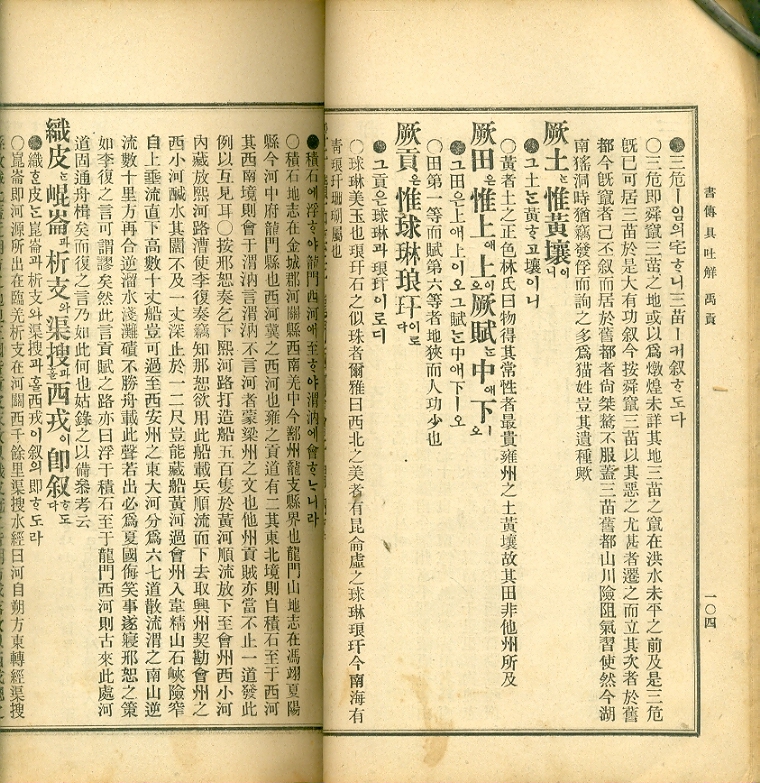 書傳具吐解 禹貢
一〇四
三危ㅣ임의宅ᄒᆞ니三苗ㅣ키敘ᄒᆞ도다
〇三危卽舜竄三苗之地或以爲燉煌未詳其地三苗之竄在洪水未平之前及是三危
旣已可居三苗於是大有功叙今按舜竄三苗以其惡之尤甚者遷之而立其次者於舊
都今旣竄者已丕叙而居於舊都者尙桀驁不服蓋三苗舊都山川險阻氣習使然今湖
南猺洞時猶竊發俘而詢之多爲猫姓豈其遺種歟
厥土ᄂᆞᆫ惟黃壤이니
그土ᄂᆞᆫ黃ᄒᆞ고壤이니
〇黃者土之正色林氏曰物得其常性者最貴雍州之土黃壤故其田非他州所及
厥田은惟上애上이오厥賦ᄂᆞᆫ中애下ㅣ오
그田은上애上이오그賦ᄂᆞᆫ中애下ㅣ오
〇田第一等而賦第六等者地狹而人功少也
厥貢은惟球琳琅玕이로다
그貢은球琳과琅玕이로디
〇球琳美玉也琅玕石之似珠者爾雅曰西北之美者有昆侖虛之球琳琅玕今南海有
靑琅玕珊瑚屬也
積石에浮ᄒᆞ야龍門西河애至ᄒᆞ야渭汭애會ᄒᆞᄂᆞ니라
〇積石地志在金城郡河關縣西南羌中今鄯州龍支縣界也龍門山地志在馮翊夏陽
縣今河中府龍門縣也西河冀之西河也雍之貢道有二其東北境則自積石至于西河
其西南境則會于渭汭言渭汭不言河者蒙梁州之文也他州貢賊亦當不止一道發此
例以互見耳〇按邢恕奏乞下熙河路打造船五百隻於黃河順流放下至會州西小河
內藏放熙河路漕使李復奏竊知邢恕欲用此船載兵順流而下去取興州契勘會州之
西小河鹹水其闊不及一丈深止於一二尺豈能藏船黃河過會州入韋精山石峽險窄
自上垂流直下高數十丈船豈可過至西安州之東大河分爲六七道散流渭之南山逆
流數十里方再合逆溜水淺灘磧不勝舟載此聲若出必爲夏國侮笑事遂寢邢恕之策
如李復之言可謂謬矣然此言貢賦之路亦曰浮于積石至于龍門西河則古來此處河
道固通舟楫矣而復之言乃如此何也姑錄之以備參考云
織皮ᄂᆞᆫ崐崙과析支와渠搜과西戎이卽叙ᄒᆞ도다
織ᄒᆞᆫ皮ᄂᆞᆫ崐崙과析支와渠搜과홀西戎이叙의卽ᄒᆞ도라
〇崐崙卽河源所出在臨羌析支在河關西千餘里渠搜水經曰河自朔方東轉經渠搜